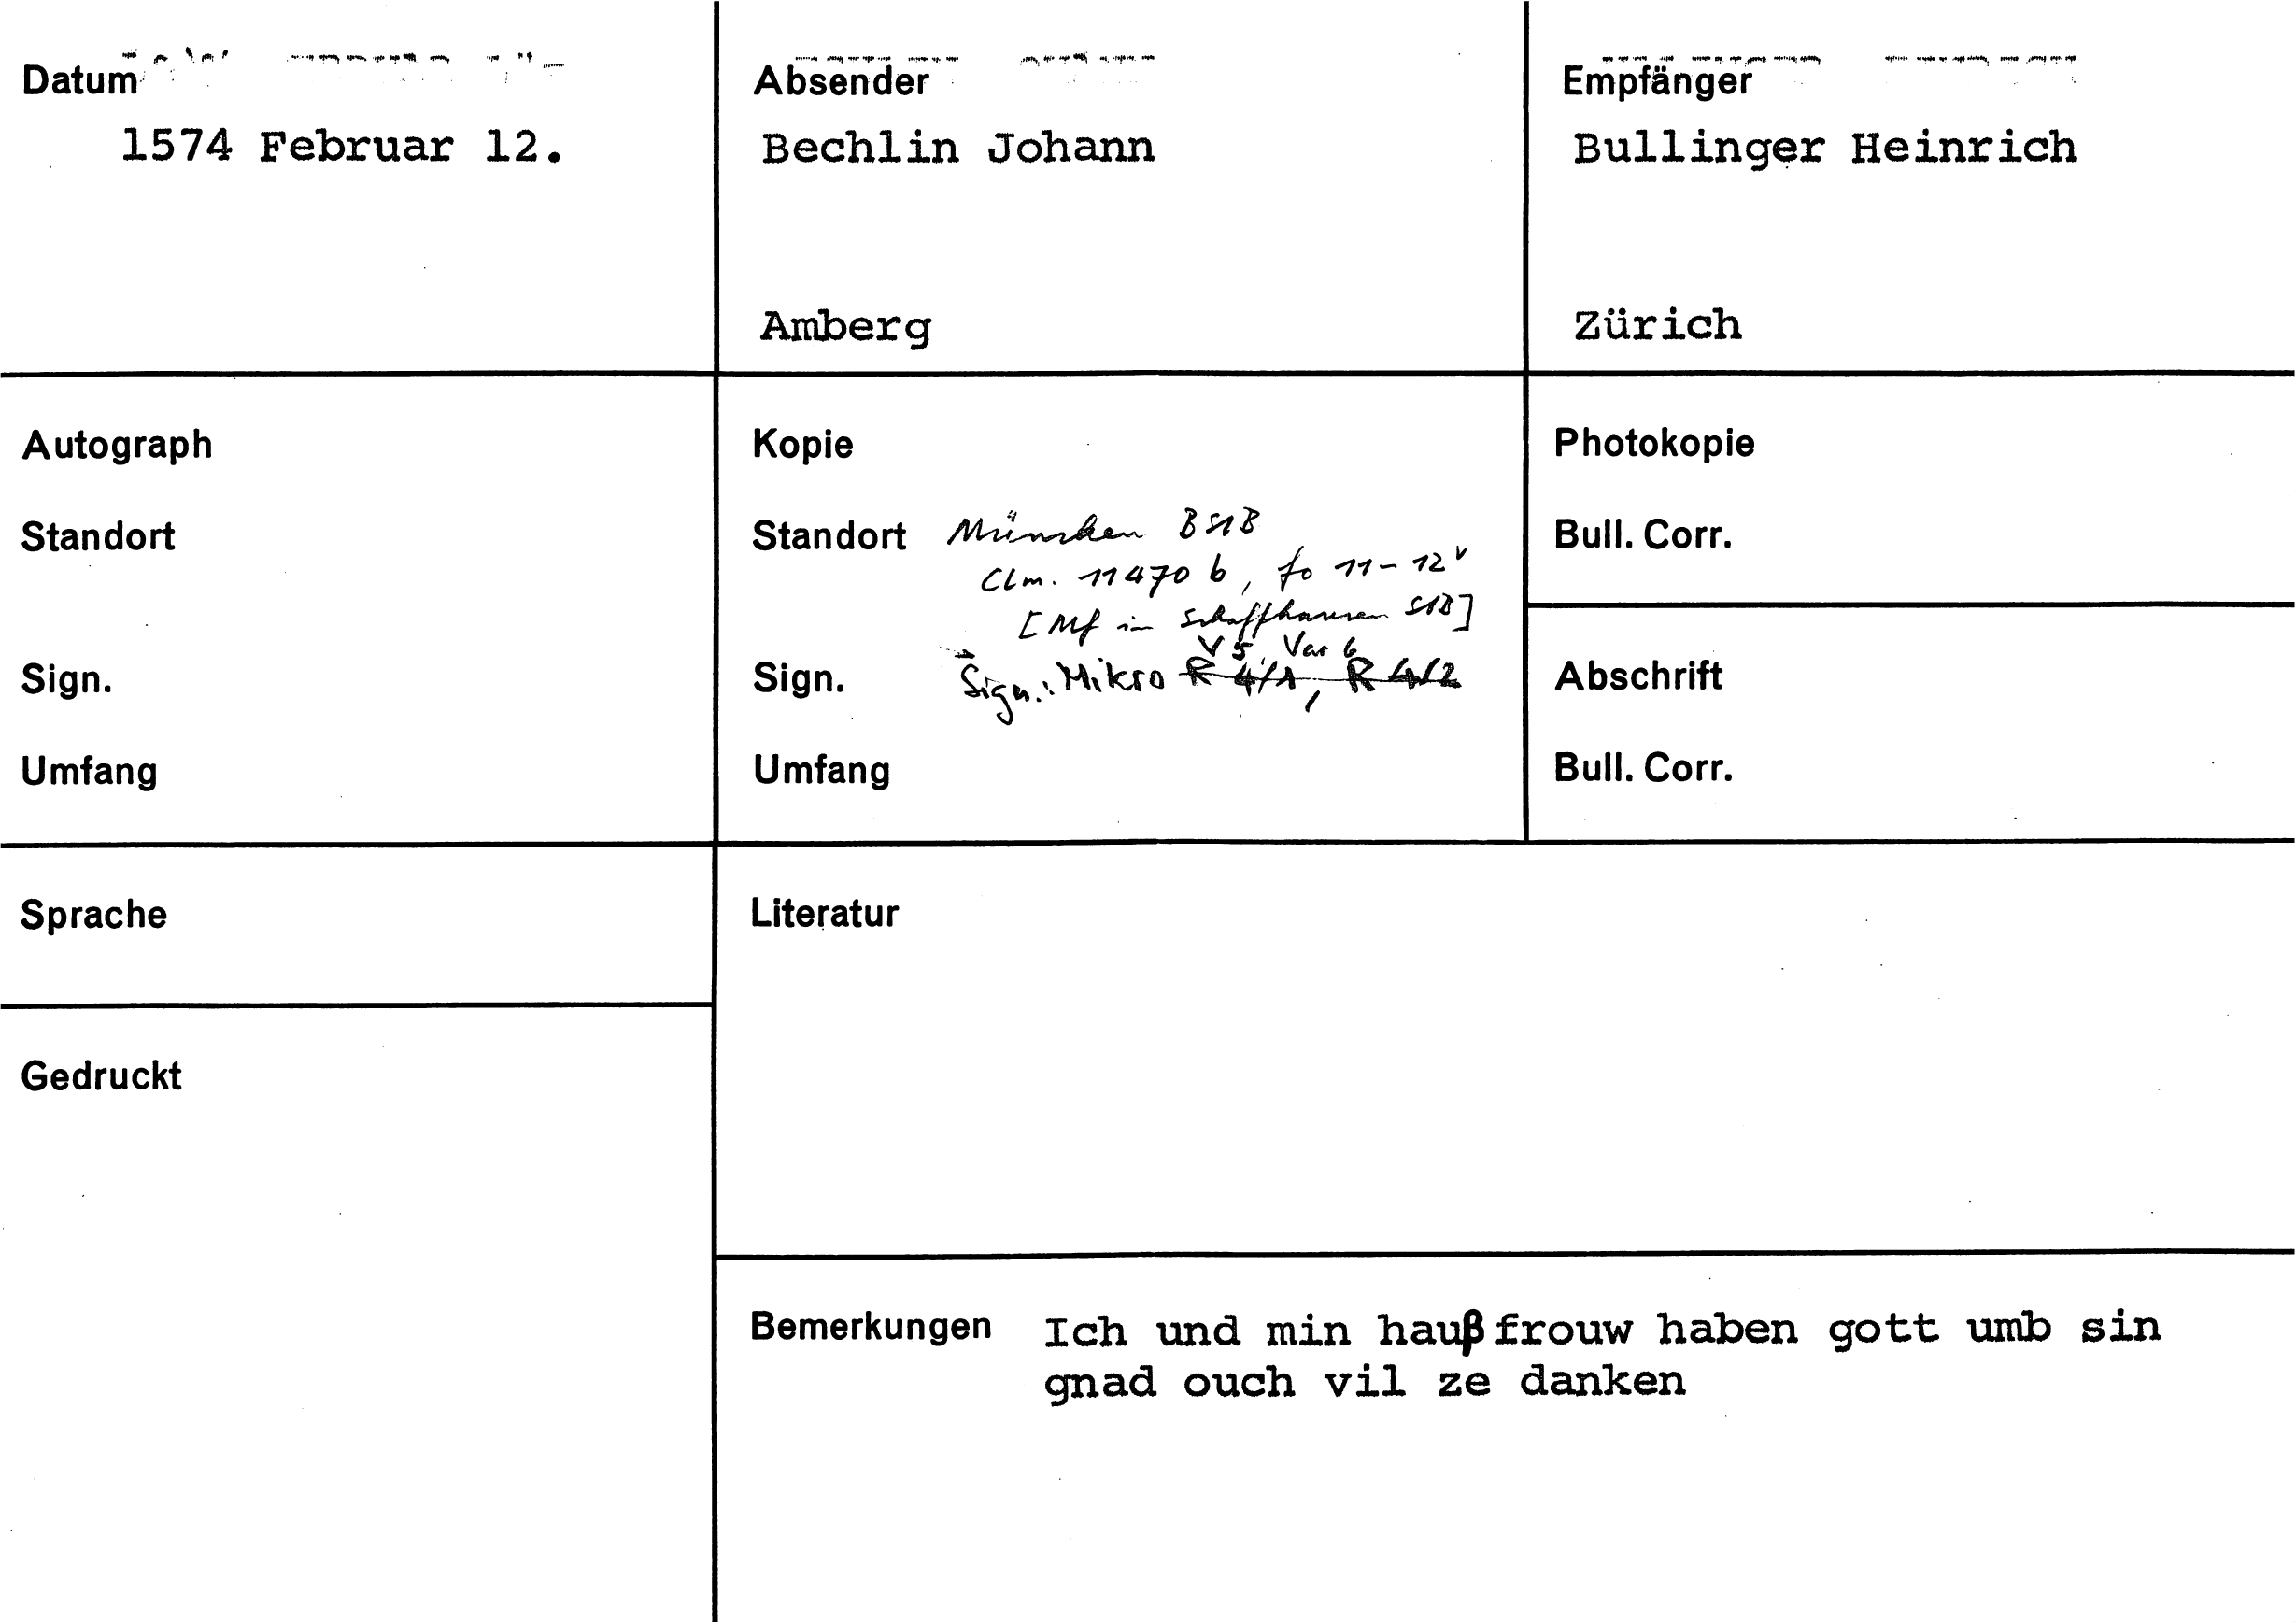 Datum
1574 Februar 12.
Absender
Bechlin Johann
Amberg
Empfänger
Bullinger Heinrich
Zürich
Autograph
Standort
Sign.
Umfang
Kopie
Standort München BStB
Clm. 11470 b, fo 11-12v
[Mf in Schaffhausen StB]
V 5, Var 6
Sign. Sign.: Mikro R 4/1, R 4/2
Umfang
Photokopie
Bull. Corr.
Abschrift
Bull. Corr.
Sprache
Literatur
Gedruckt
Bemerkungen Ich und min haußfrouw haben gott umb sin
gnad ouch vil ze danken